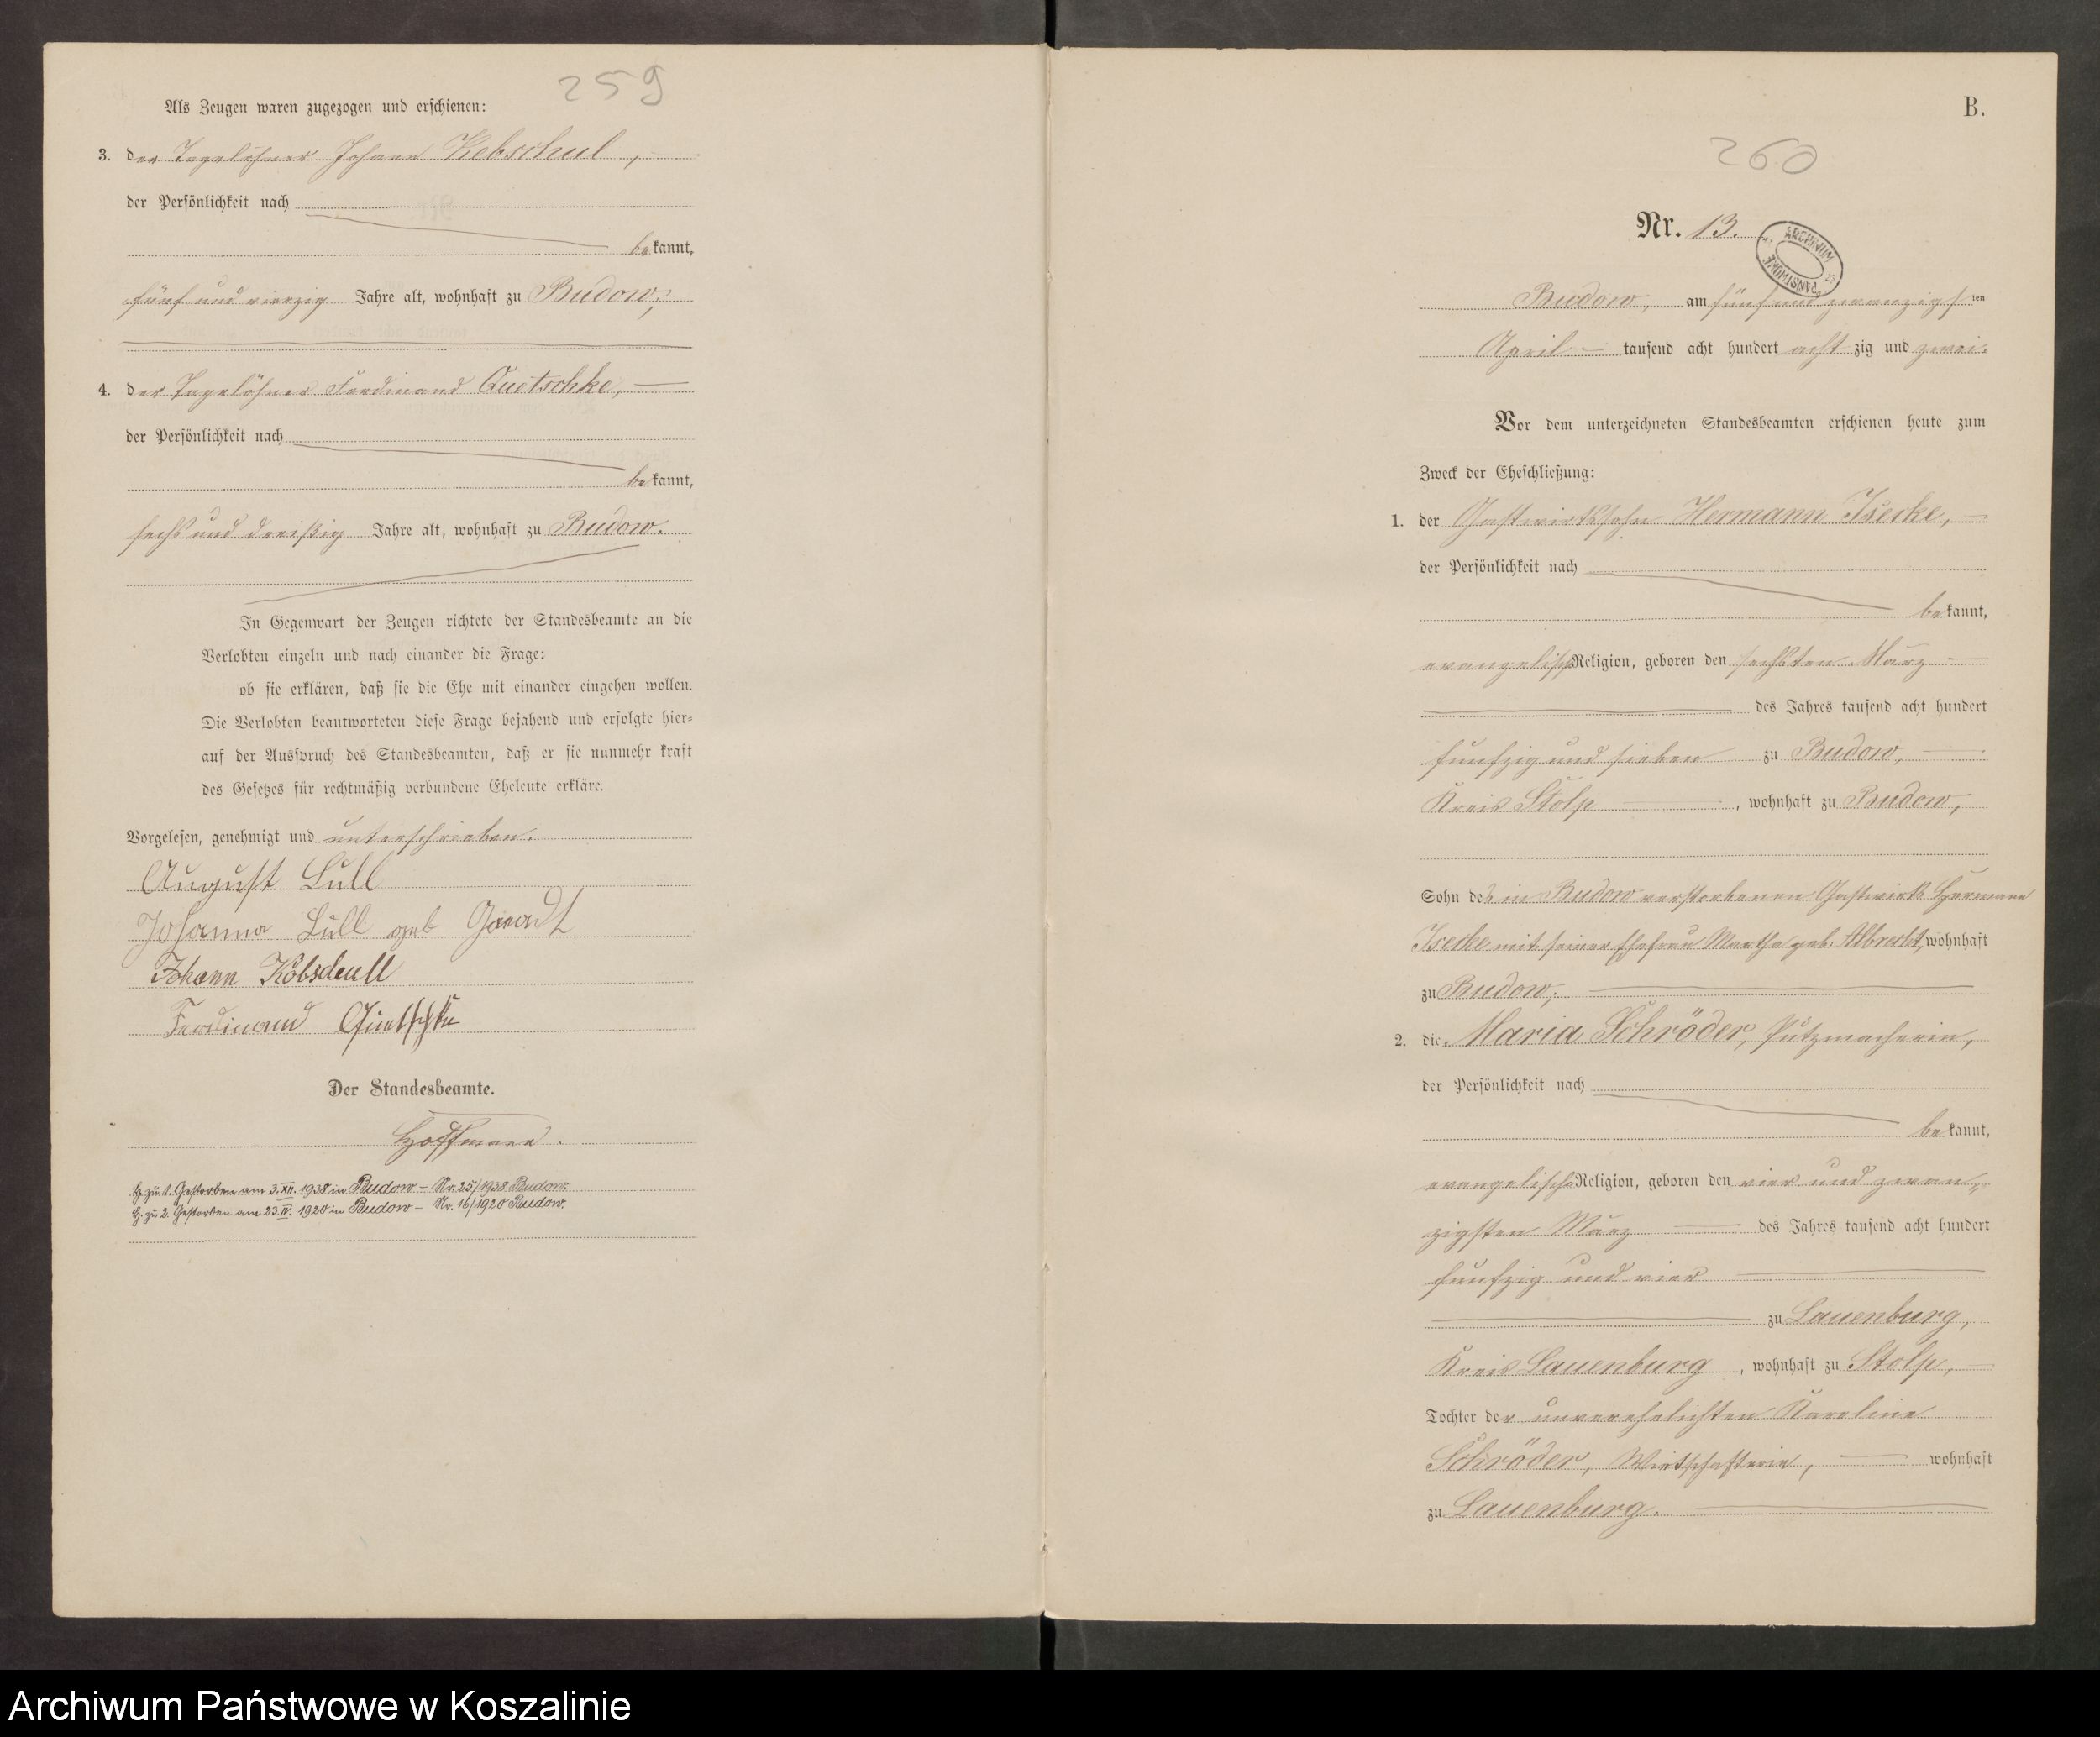 259
Als Zeugen waren zugezogen und erschienen:
3. der Tagelöhner Johann Kebschul,
der Persönlichkeit nach
bekannt,
fünf und vierzig Jahre alt, wohnhaft zu Budow,
4. der Tagelöhner Ferdinand Quetschke,
der Persönlichkeit nach
bekannt,
sechs und dreißig Jahre alt, wohnhaft zu Budow.
In Gegenwart der Zeugen richtete der Standesbeamte an die
Verlobten einzeln und nach einander die Frage:
ob sie erklären, daß sie die Ehe mit einander eingehen wollen.
Die Verlobten beantworteten diese Frage bejahend und erfolgte hier-
auf der Ausspruch des Standesbeamten, daß er sie nunmehr kraft
des Gesetzes für rechtmäßig verbundene Eheleute erkläre.
Vorgelesen, genehmigt und unterschrieben.
August Lüll
Johanna Lüll geb
Johann Kobschull
Ferdinand Quetschke
Der Standesbeamte.
Hoffmann.
H. zu 1. Gestorben am 3.XII.1938 in Budow – Nr. 25/1938 Budow.
H. zu 2. Gestorben am 23.IV.1920 in Budow – Nr. 16/1920 Budow.
B.
260
Nr. 13.
ARCHIWUM PAŃSTWOWE
Budow, am fünf und zwanzigsten
April tausend acht hundert achtzig und zwei.
Vor dem unterzeichneten Standesbeamten erschienen heute zum
Zweck der Eheschließung:
1. der Gastwirthssohn Hermann Isecke,
der Persönlichkeit nach
bekannt,
evangelischer Religion, geboren den sechsten März
des Jahres tausend acht hundert
funfzig und sieben zu Budow,
Kreis Stolp, wohnhaft zu Budow,
Sohn des in Budow verstorbenen Gastwirths Hermann
Isecke mit seiner Ehefrau Martha geb. Albrecht, wohnhaft
zu Budow;
2. die Maria Schröder, Putzmacherin,
der Persönlichkeit nach
bekannt,
evangelischer Religion, geboren den vier und zwan-
zigsten März des Jahres tausend acht hundert
funfzig und vier
zu Lauenburg,
Kreis Lauenburg, wohnhaft zu Stolp,
Tochter der unverehelichten Karoline
Schröder, Wirthschafterin, wohnhaft
zu Lauenburg.
Archiwum Państwowe w Koszalinie